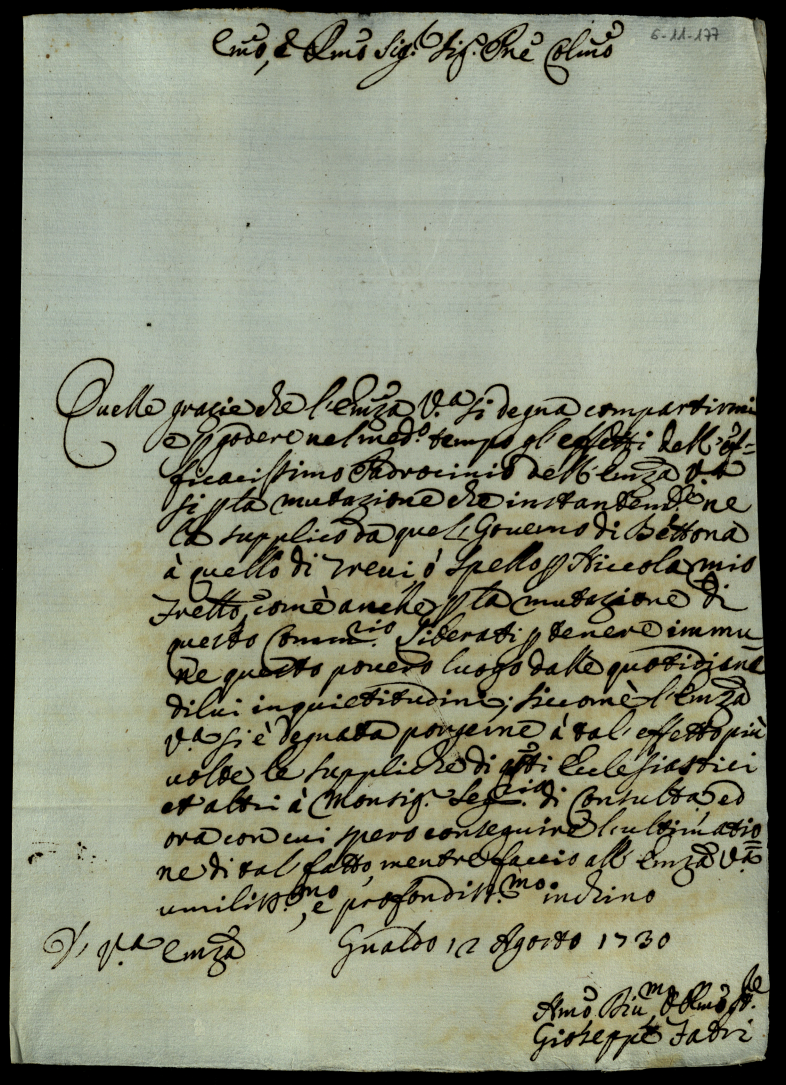 6-11-177
Emo, e Rmo Sig.r Sig. Pne Colmo
Quelle grazie che l'Emza V.a si degna compartirmi
e p godere nel med.o tempo gl'effetti dell'ef=
ficacissimo Padrocinio dell'Emza V.a
si p la mutazione che instantem.te ne
la supplico da quel Governo di Bettona
à quello di Trevi ó Spello p Niccola mio
Fretto, com'è anche p la mutazione di
questo Comm.rio Liberati p tenere immu
ne questo povero luogo dalle quotidiane
di lui inquietitudini; siccom'è l'Emza
V.a si è degnata porgerne à tal'effetto più
volte le suppliche di qsti Ecclesiastici
et altri à Monsig.r Seg.rio di Consulta, ed
ora con cui spero conseguire l'ultimatio=
ne di tal fatto, mentre faccio all'Emza V.a
umiliss.mo, e profondiss.mo inchino
D. V.a Emza Gualdo 12 Agosto 1730
Gioseppe Fabri